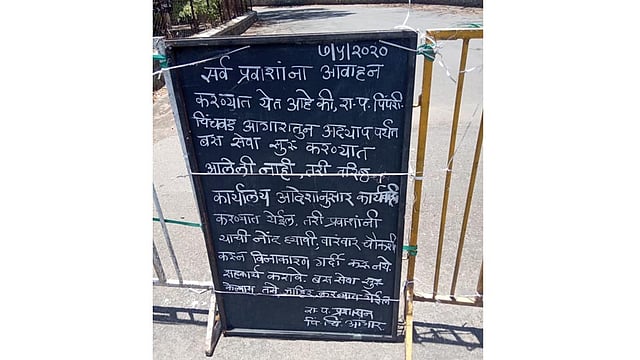 ७/५/२०२०
सर्व प्रवाशांना आवाहन
करण्यात येत आहे की, रा.प. पिंपरी-
चिंचवड आगारातुन अद्याप पर्यंत
बस सेवा सुरु करण्यात
आलेली नाही, तरी वरिष्ठ
कार्यालय आदेशानुसार कार्यवाही
करण्यात येईल, तरी प्रवाशांनी
याची नोंद घ्यावी, वारंवार चौकशी
करुन विनाकारण गर्दी करू नये.
सहकार्य करावे. बस सेवा सुरु
केल्यास तसे जाहिर करण्यात येईल
रा.प. प्रशासन
पिं चिं आगार